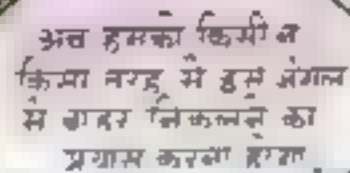 अब हमको किसी न
किसी तरह से इस जंगल
से बाहर निकलने का
प्रयास करना होगा